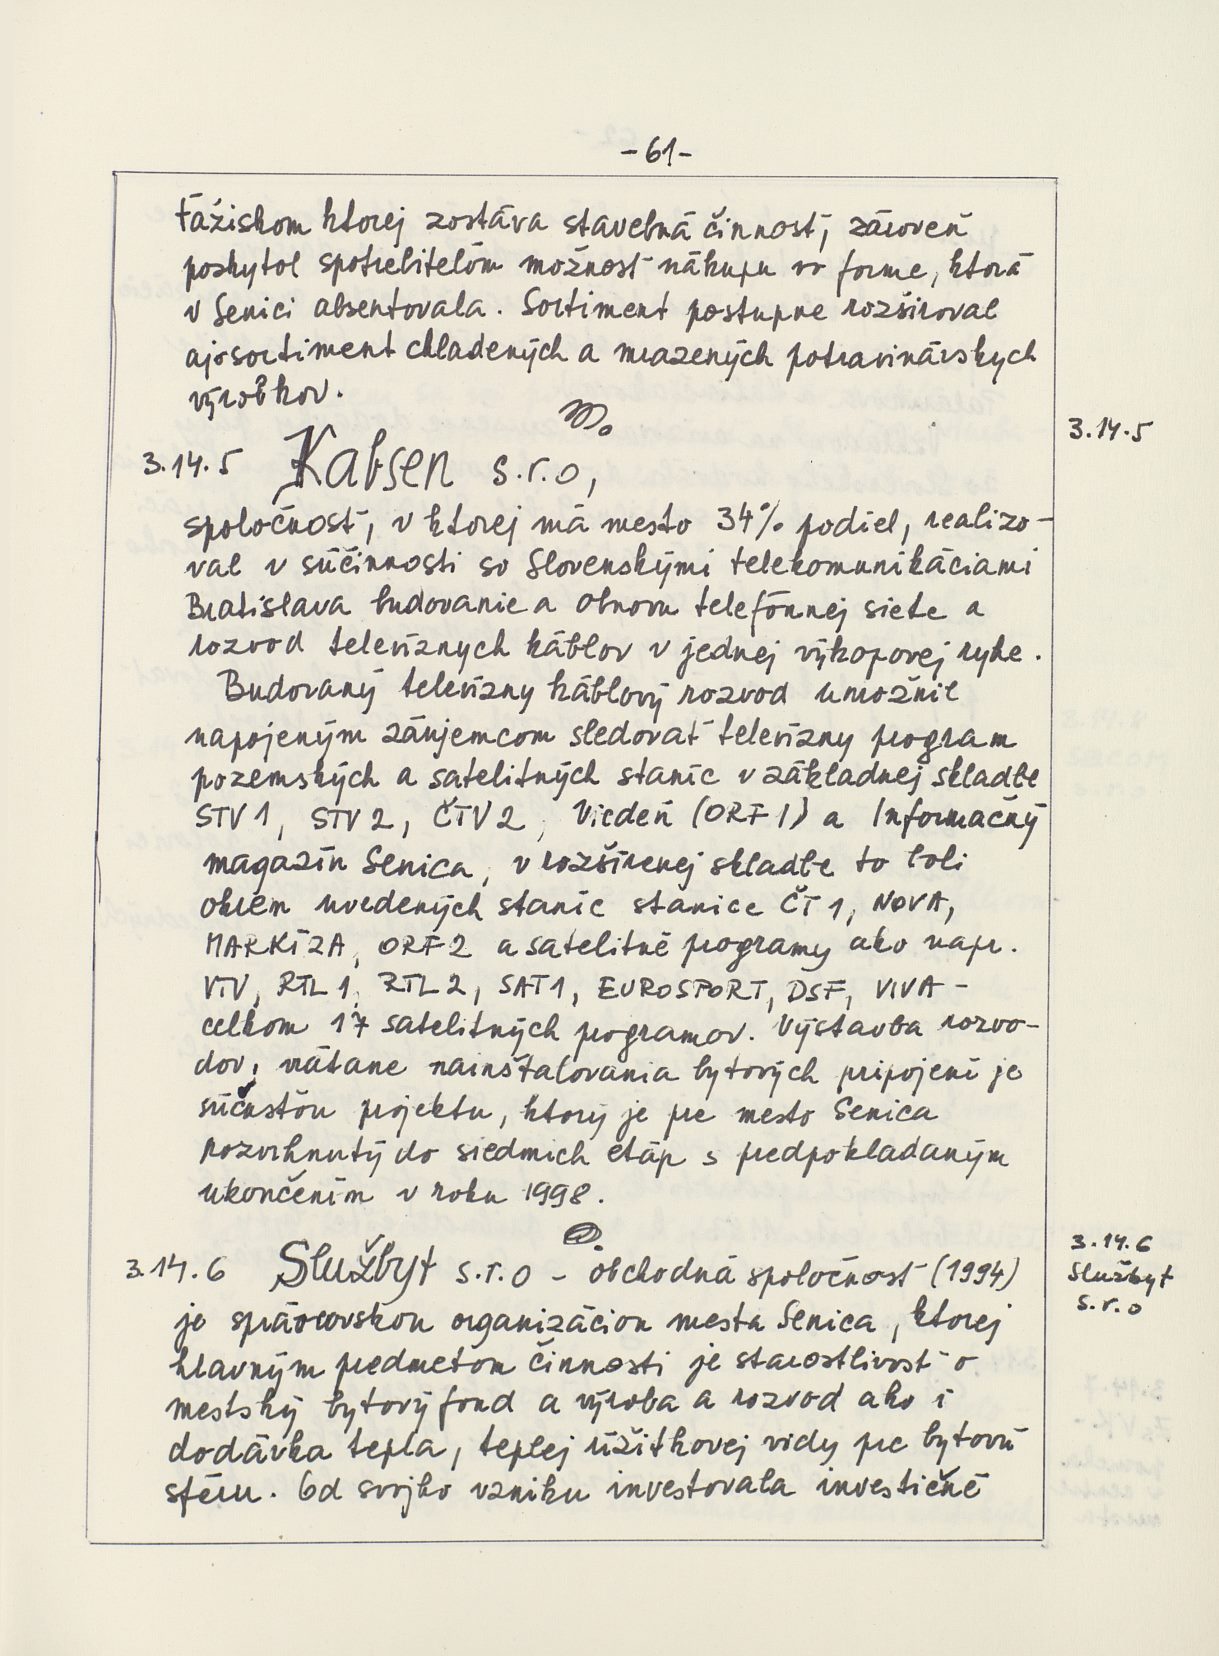 -61-
ťažiskom ktorej zostáva stavebná činnosť, zároveň
poskytol spotrebiteľom možnosť nákupu vo forme, ktorá
v Senici absentovala. Sortiment postupne rozširoval
aj o sortiment chladených a mrazených potravinárskych
výrobkov.
3.14.5
3.14.5 Kabsen s.r.o,
spoločnosť, v ktorej má mesto 34% podiel, realizo-
val v súčinnosti so Slovenskými telekomunikáciami
Bratislava budovanie a obnovu telefónnej siete a
rozvod televíznych káblov v jednej výkopovej ryhe.
Budovaný televízny káblový rozvod umožnil
napojeným záujemcom sledovať televízny program
pozemských a satelitných staníc v základnej skladbe
STV 1, STV 2, ČTV 2, Viedeň (ORF 1) a Informačný
magazín Senica, v rozšírenej skladbe to boli
okrem uvedených staníc stanice ČT 1, NOVA,
MARKÍZA, ORF 2 a satelitné programy ako napr.
VTV, RTL 1, RTL 2, SAT 1, EUROSPORT, DSF, VIVA -
celkom 17 satelitných programov. Výstavba rozvo-
dov, vrátane nainštalovania bytových pripojení je
súčasťou projektu, ktorý je pre mesto Senica
rozvrhnutý do siedmich etáp s predpokladaným
ukončením v roku 1998.
3.14.6 Službyt s.r.o - obchodná spoločnosť (1994)
3.14.6
Službyt
s.r.o
je správcovskou organizáciou mesta Senica, ktorej
hlavným predmetom činnosti je starostlivosť o
mestský bytový fond a výroba a rozvod ako i
dodávka tepla, teplej úžitkovej vody pre bytovú
sféru. Od svojho vzniku investovala investičné